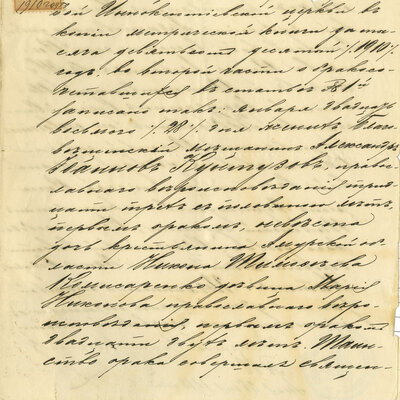 вой Иннокентіевской церкви въ
копіи метрической книги за ты-
сяча девятьсотъ десятый /1910/
годъ во второй части о бракосо-
четавшихся въ статьѣ №1й
записано такъ: января двадцать
восьмого /28/ дня женихъ Благо-
вѣщенскій мѣщанинъ Александръ
Ивановъ право-
славнаго вѣроисповѣданія трид-
цати трехъ съ половиною лѣтъ,
первымъ бракомъ, невѣста
дочь крестьянина Амурской об-
ласти Никона Тимофеева
Комисаренко дѣвица Марія
Никонова православнаго вѣро-
исповѣданія, первымъ бракомъ
двадцати двухъ лѣтъ. Таин-
ство брака совершалъ священ-